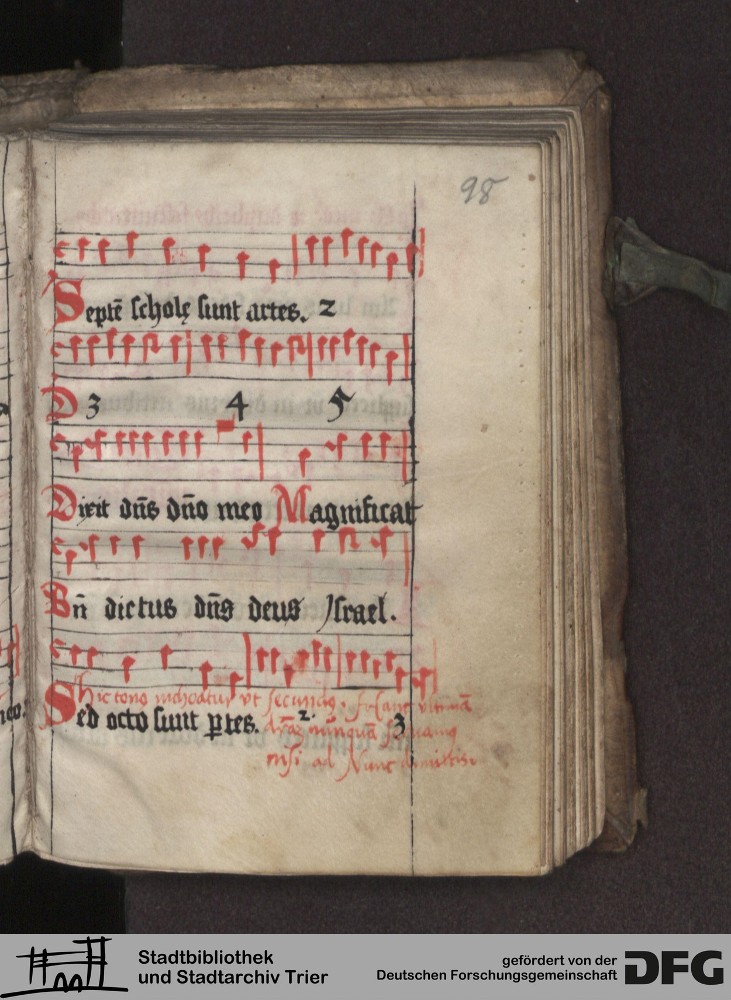 98
Septē scholę sunt artes. 2
D 3 4 5
Dixit dn̄s dn̄o meo Magnificat
Bn̄ dictus dn̄s deus Israel.
hic tonꝰ inchoatur vt secundꝰ.
Sed octo sunt ꝑtes. 2. 3
nisi ad Nunc dimittis
Stadtbibliothek
und Stadtarchiv Trier
gefördert von der
Deutschen Forschungsgemeinschaft
DFG